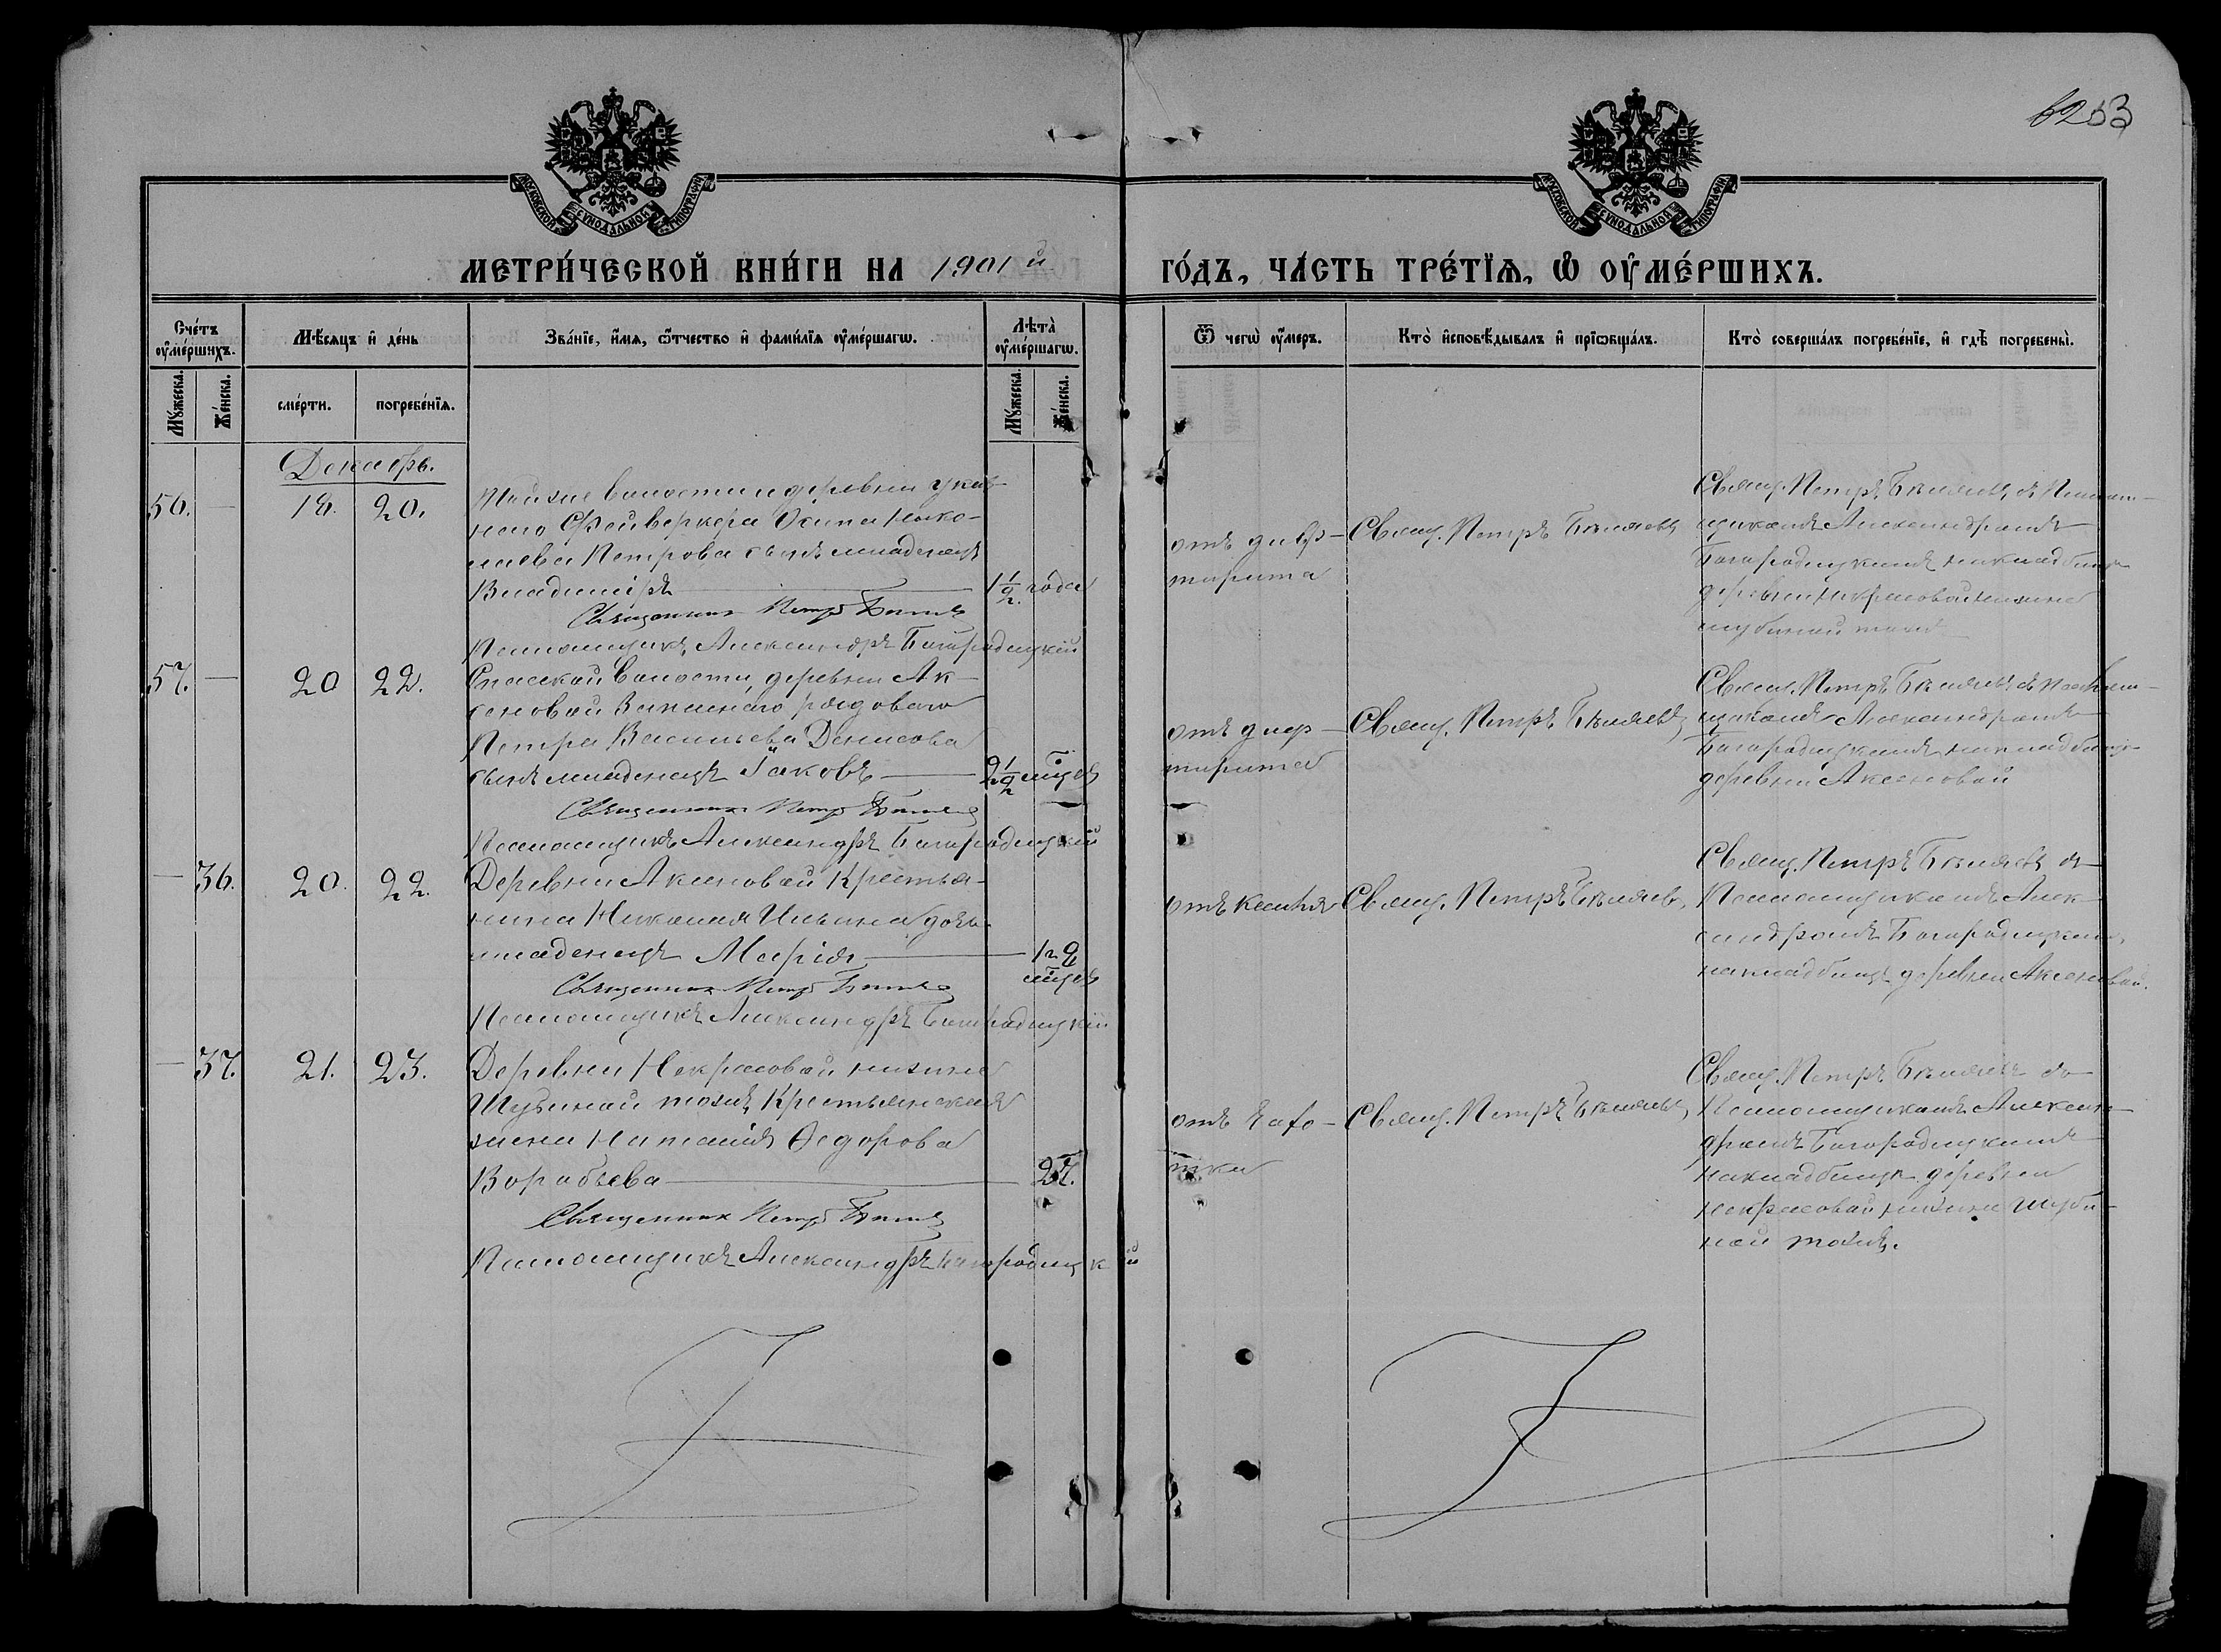 6253
МОСКОВСКОЙ СѴНОДАЛЬНОЙ ТИПОГРАФІИ
МОСКОВСКОЙ СѴНОДАЛЬНОЙ ТИПОГРАФІИ
МЕТРИ́ЧЕСКОЙ КНИ́ГИ НА 1901 й ГО́ДЪ, ЧА́СТЬ ТРЕ́ТЇѦ, Ѡ ОУ҆МЕ́РШИХЪ.
Сче́тъ оу҆ме́ршихъ.
Мꙋ́жеска.
Же́нска.
Мѣ́сяцъ и҆ де́нь
сме́рти.
погребе́нїѧ.
Зва́нїе, и҆́мѧ, ѻ҆́тчество и҆ фами́лїѧ оу҆ме́ршагѡ.
Лѣ́та̀ оу҆ме́ршагѡ.
Мꙋ́жеска.
Же́нска.
Ѿ чегѡ̀ оу҆́меръ.
Кто̀ и҆сповѣ́дывалъ и҆ прїѡбща́лъ.
Кто̀ соверша́лъ погребе́нїе, и҆ гдѣ̀ погребены̀.
Декабрь.
56. — 18. 20.
Тойже волости и деревни
Фейверкера Осипа Нико-
лаева Петрова сынъ младенецъ
Владиміръ — 1 1/2 года
Священник Петр Беляев
Псаломщикъ Александръ Богородицкій
отъ диф-
терита
Свящ. Петръ Бѣляевъ
Свящ. Петръ Бѣляевъ съ Псалом-
щикомъ Александромъ
Богородицкимъ на кладбищѣ
деревни Некрасовой
57. — 20 22.
Спасской волости, деревни Ак-
сеновой Запаснаго рядоваго
Петра Васильева Денисова
сынъ младенецъ Іаковъ — 2 1/2 мѣс.
Священник Петр Беляев
Псаломщикъ Александръ Богородицкій
отъ диф-
терита
Свящ. Петръ Бѣляевъ
Свящ. Петръ Бѣляевъ съ Псалом-
щикомъ Александромъ
Богородицкимъ на кладбищѣ
деревни Аксеновой
— 36. 20. 22.
Деревни Аксеновой Крестья-
нина Николая Ильина дочь
младенецъ Марія —
Священник Петр Беляев
Псаломщикъ Александръ Богородицкій
отъ кашля
Свящ. Петръ Бѣляевъ
Свящ. Петръ Бѣляевъ съ
Псаломщикомъ Алек-
сандромъ Богородицкимъ
на кладбищѣ деревни Аксеновой.
— 37. 21. 23.
Деревни Некрасовой
Крестьянская
жена Наталія Ѳедорова
Воробьева — 27.
Священник Петр Беляев
Псаломщикъ Александръ Богородицкій
отъ чахо-
тки
Свящ. Петръ Бѣляевъ
Свящ. Петръ Бѣляевъ съ
Псаломщикомъ Алексан-
дромъ Богородицкимъ
на кладбищѣ деревни
Некрасовой